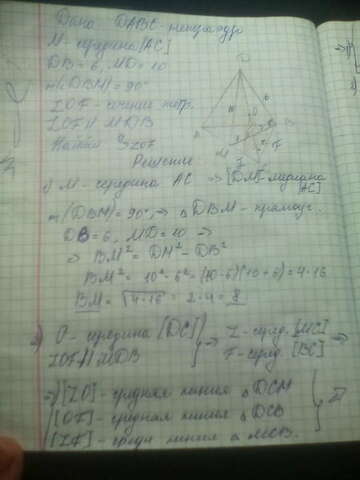 Дано DABC - тетраэдр
M - середина [AC]
DB = 6, MD = 10
m(∠DBM) = 90°
IOF - сечение тетр.
IOF || MDB
Найти S IOF
Решение
1) M - середина AC ⇒ [DM] - медиана [AC]
m(∠DBM) = 90°, ⇒ △DBM - прямоуг.
DB = 6, MD = 10 ⇒
⇒ BM² = DM² - DB²
BM² = 10² - 6² = (10-6)(10+6) = 4·16
BM = √4·16 = 2·4 = 8
2) O - середина [DC] ⇒ I - серед. [MC]
IOF || MDB F - серед. [BC] ⇒
⇒ [IO] - средняя линия △DCM
[OF] - средняя линия △DCB ⇒
[IF] - средн линия △ MCB.